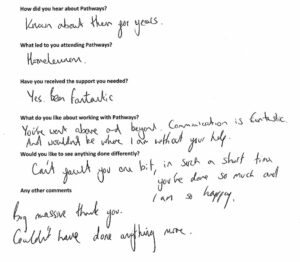 How did you hear about Pathways?
Known about them for years.
What led to you attending Pathways?
Homelessness.
Have you received the support you needed?
Yes. Been Fantastic
What do you like about working with Pathways?
You've went above and beyond. Communication is fantastic.
And wouldn't be where I am without your help.
Would you like to see anything done differently?
Can't fault you one bit, in such a short time
you've done so much and
I am so happy.
Any other comments
Big massive thank you.
Couldn't have done anything more.